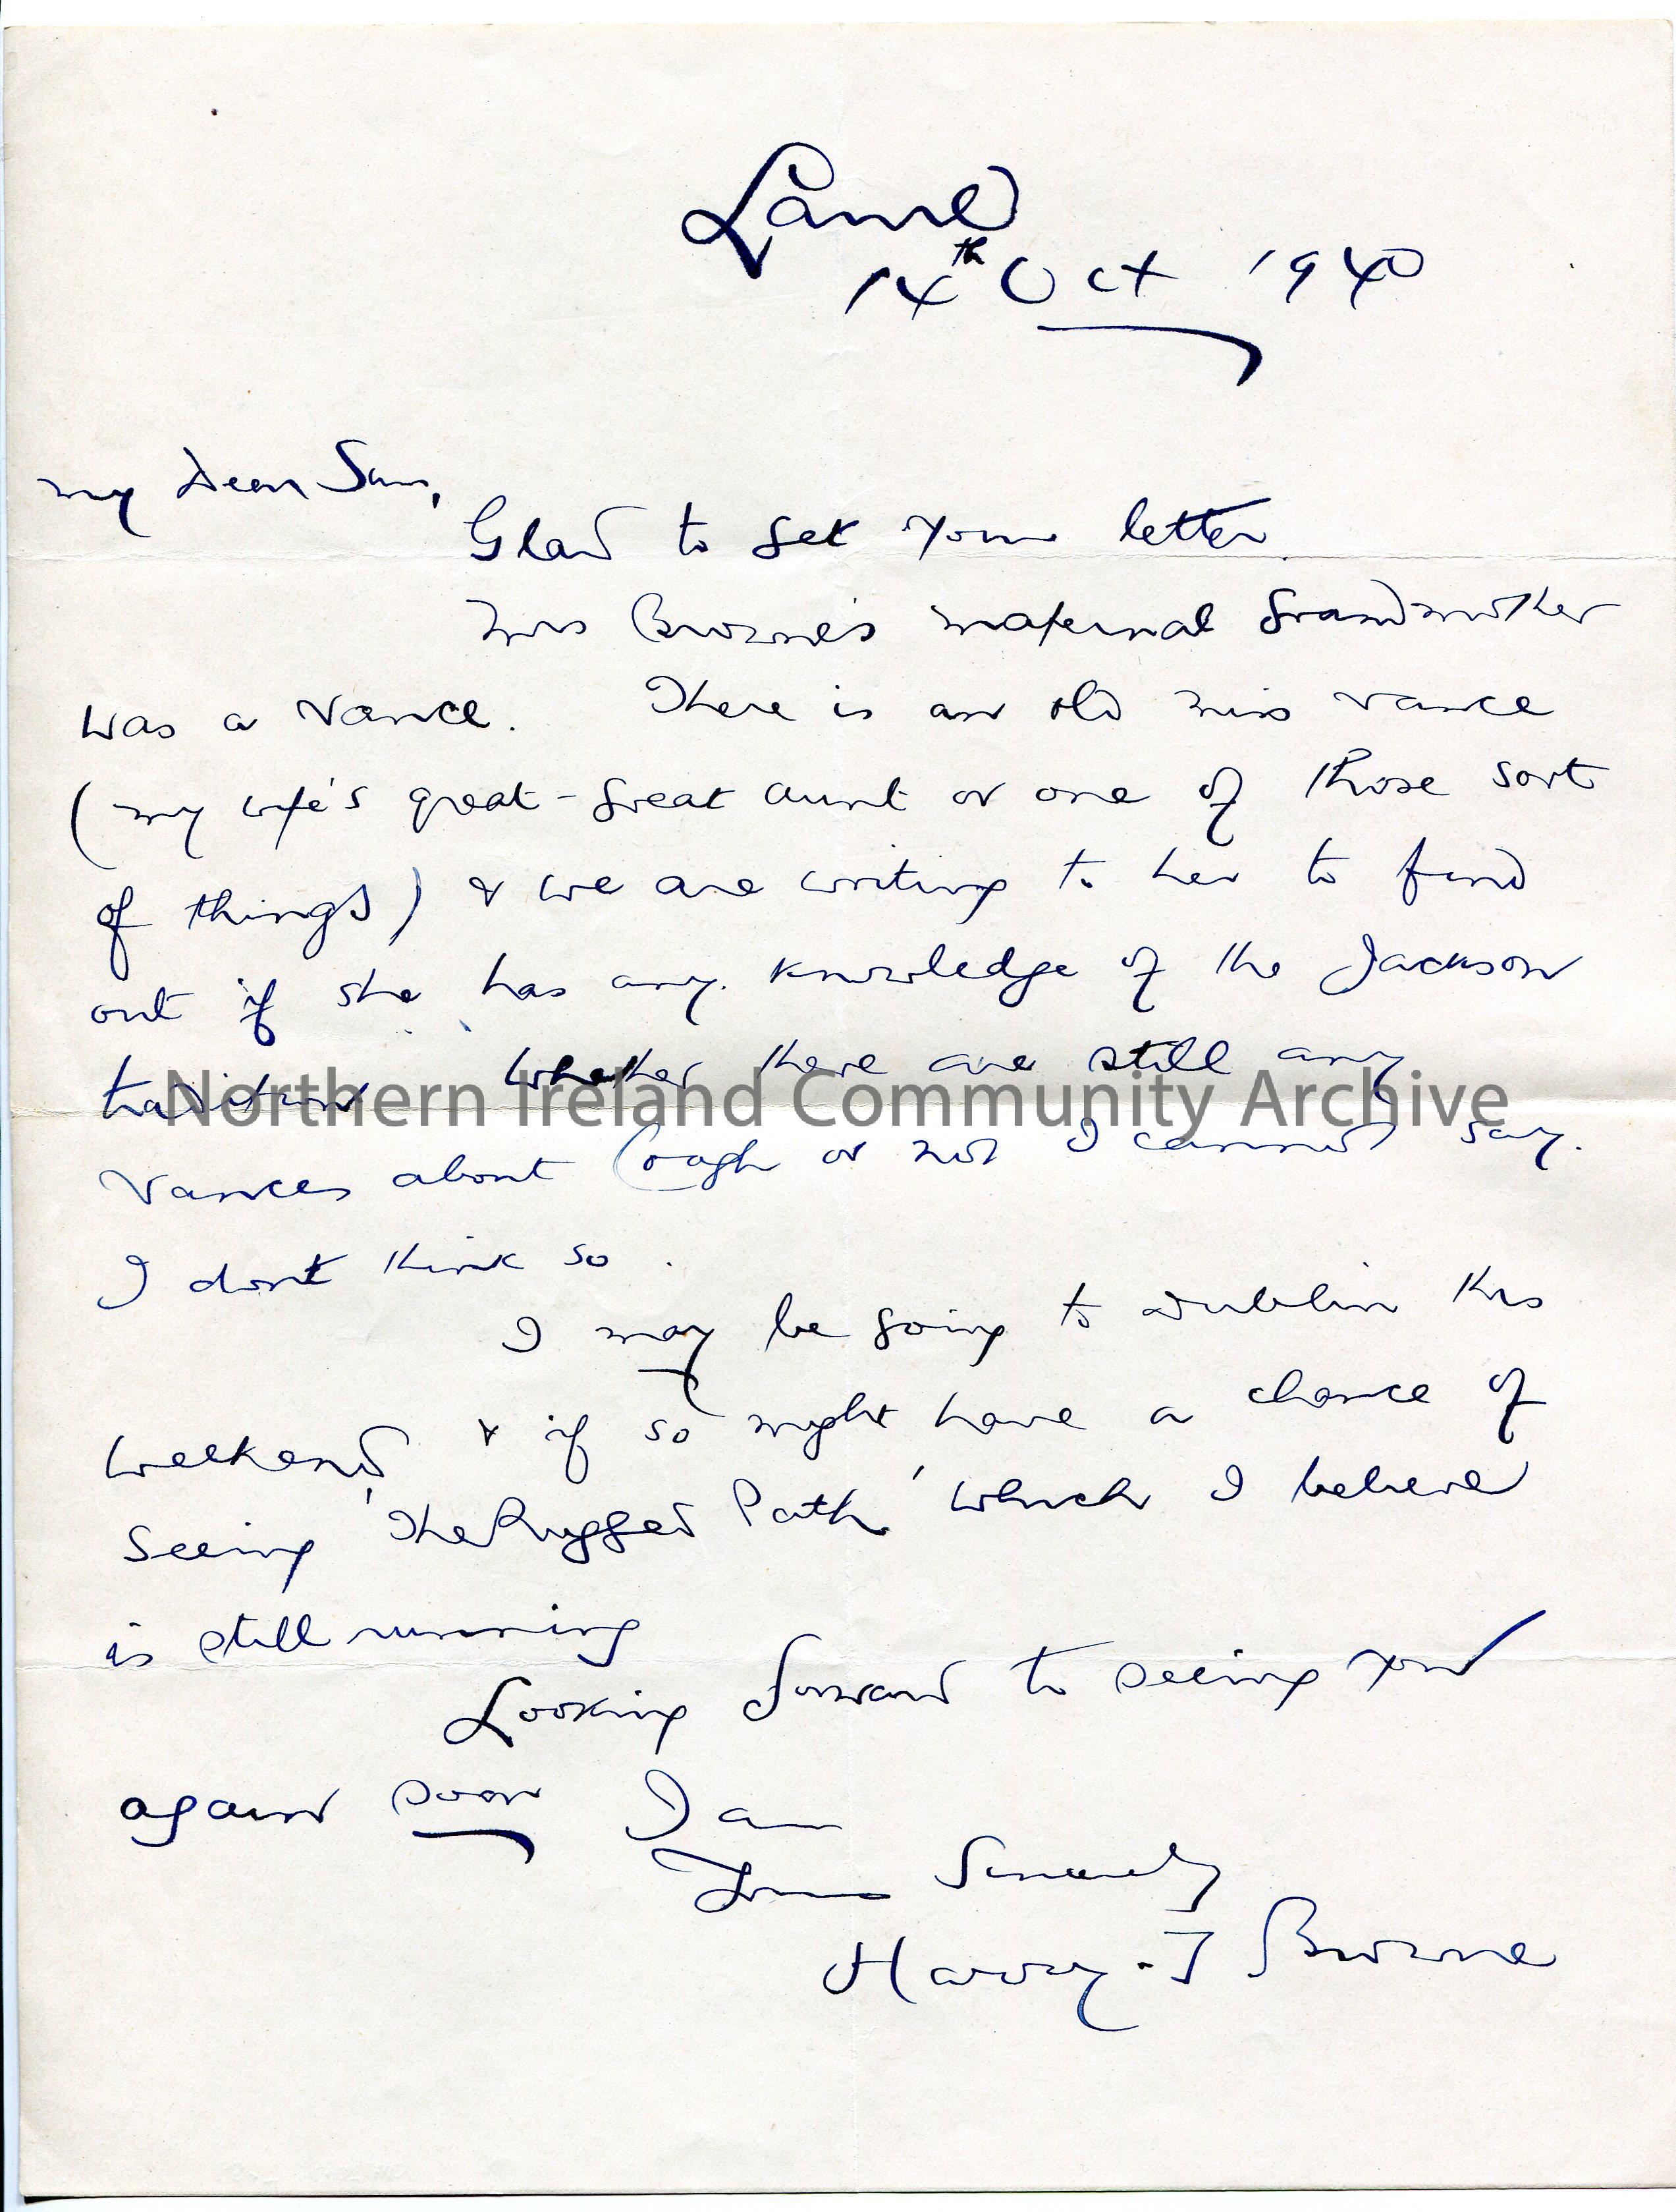 Larne
14th Oct 1940
My Dear Sam,
Glad to get your letter.
Mrs Browne's maternal grandmother
was a Vance. There is an old Miss Vance
(my wife's great-great aunt or one of those sort
of things) & we are writing to her to find
out if she has any knowledge of the Jackson
tradition whether there are still any
Northern Ireland Community Archive
Vances about Coagh or not I cannot say.
I dont think so.
I may be going to Dublin this
weekend & if so might have a chance of
seeing 'The Rugged Path' which I believe
is still running
Looking forward to seeing you
again soon I am
Yours Sincerely
Harry . T Browne